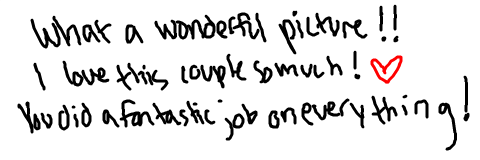 What a wonderful picture!!
I love this couple so much! ♡
You did a fantastic job on everything!